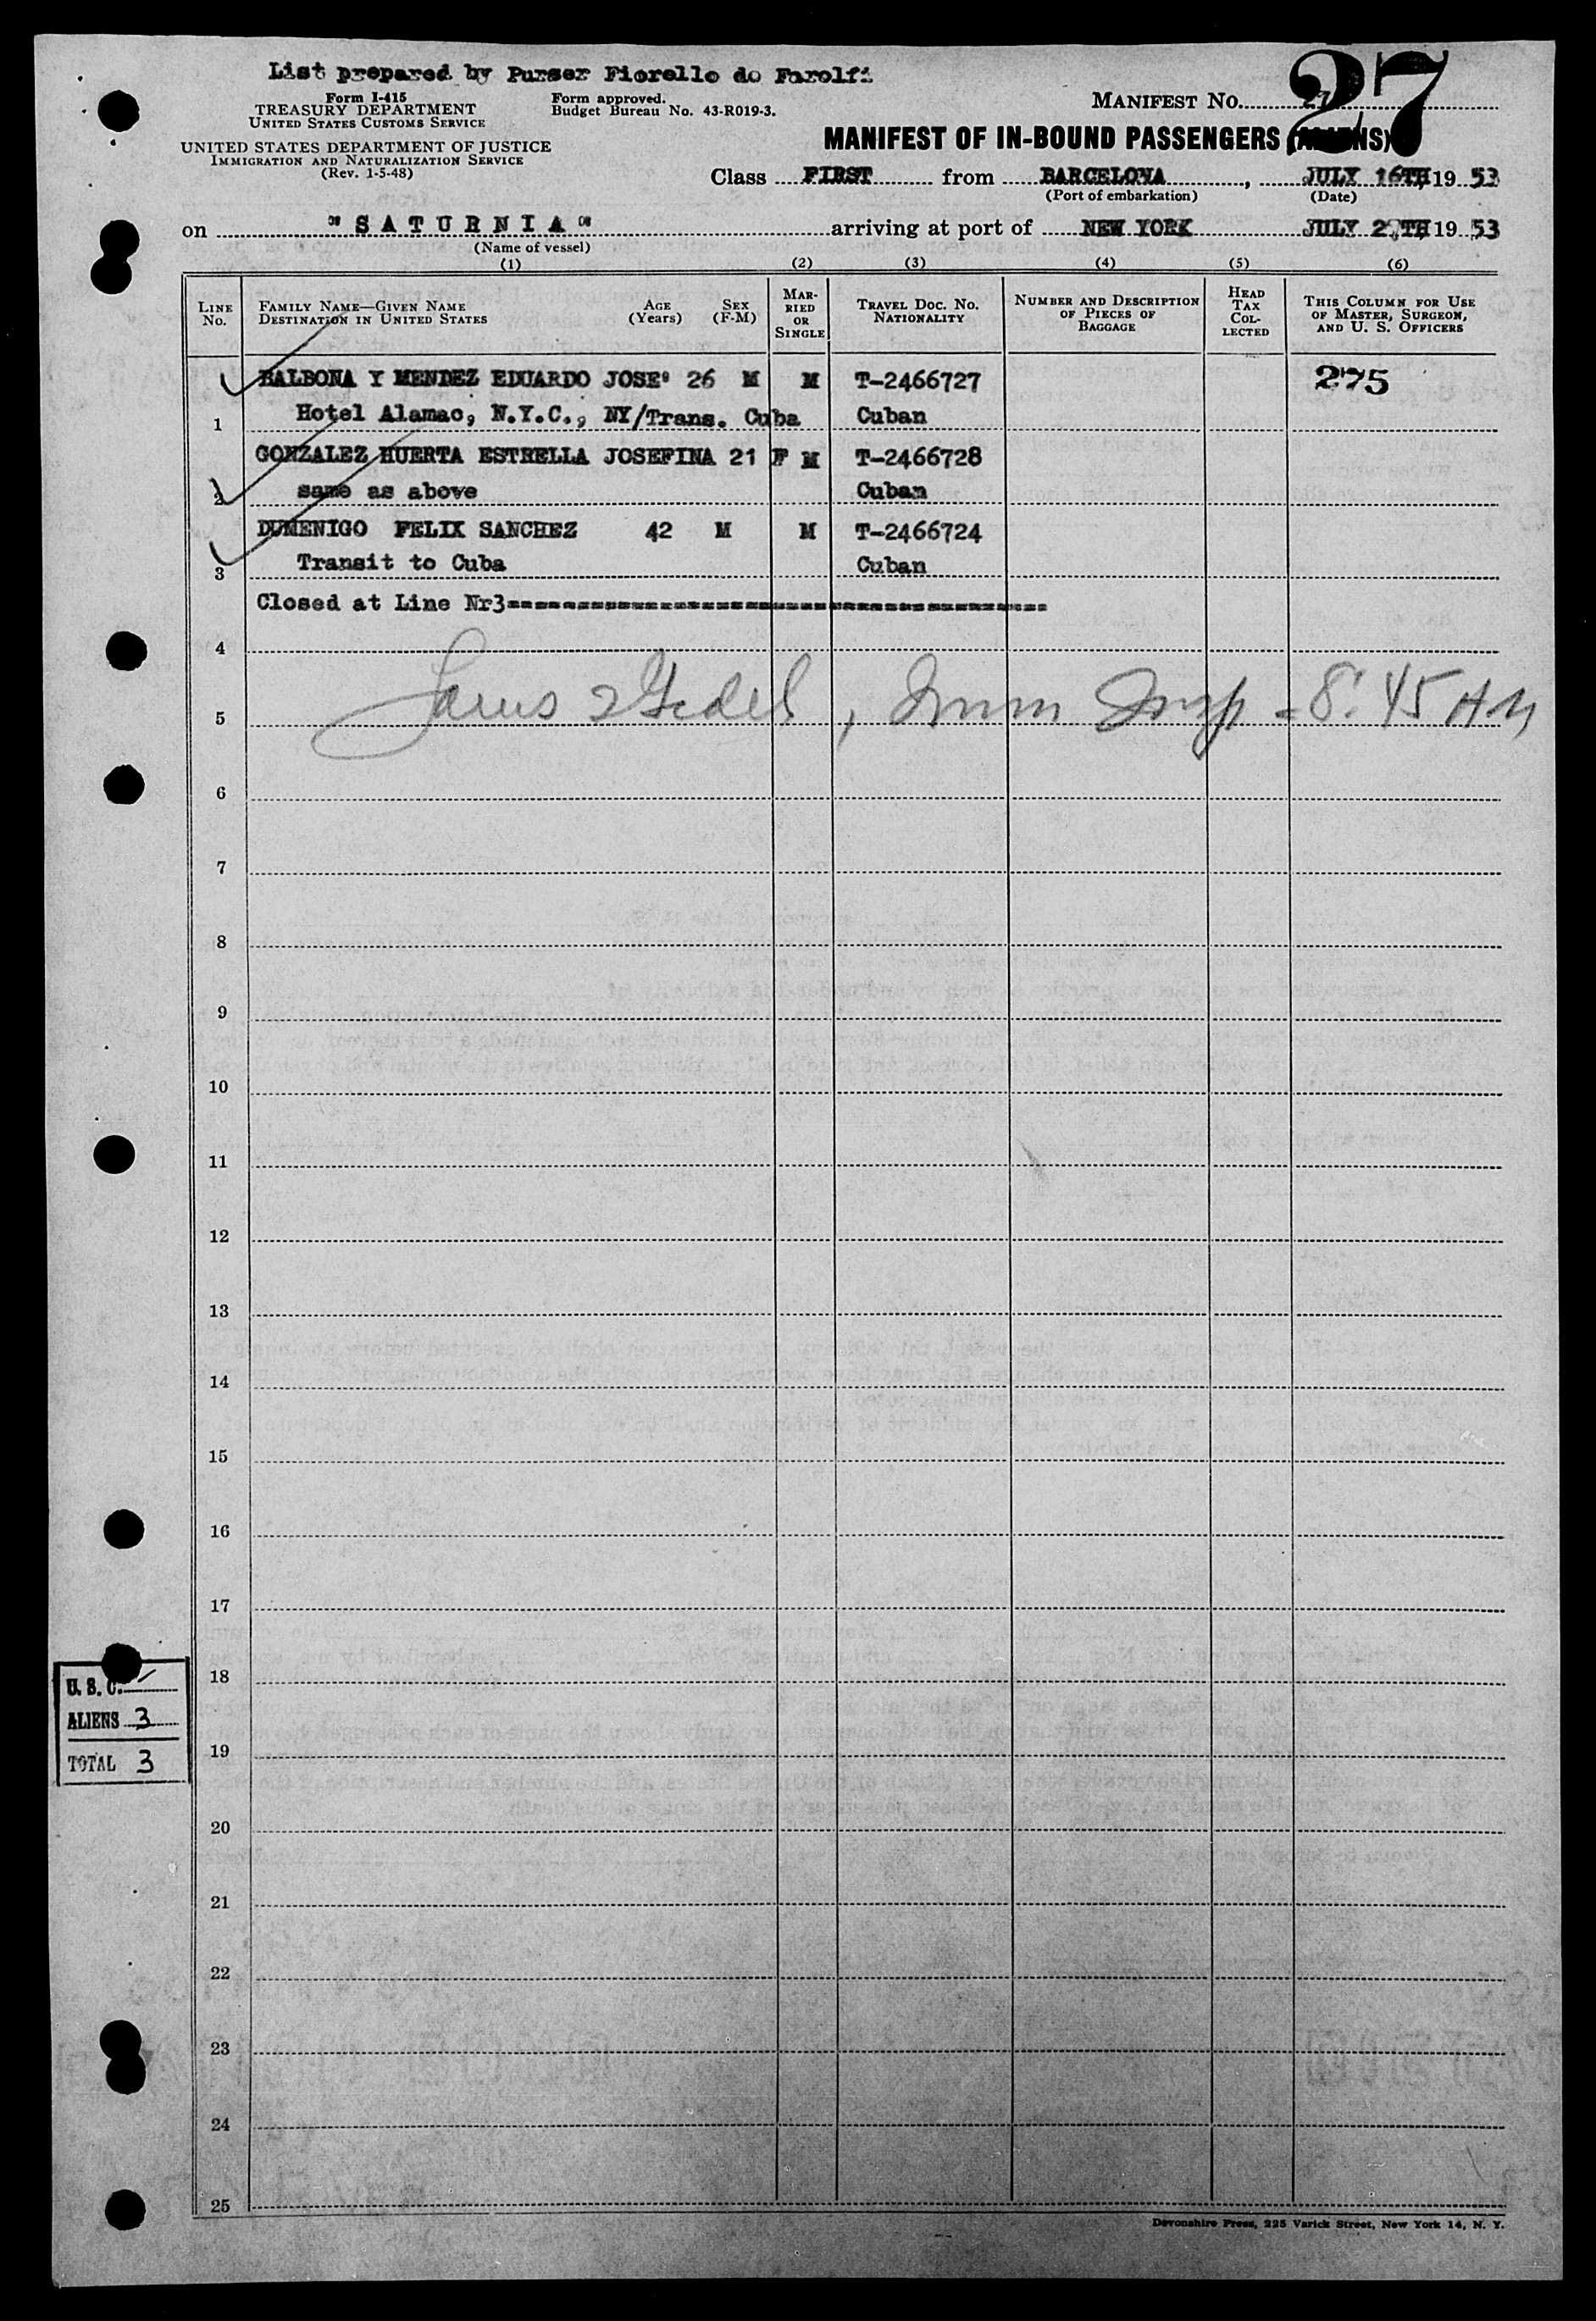 List prepared by Purser Fiorello do Farolfi
Form I-415
TREASURY DEPARTMENT
UNITED STATES CUSTOMS SERVICE
UNITED STATES DEPARTMENT OF JUSTICE
IMMIGRATION AND NATURALIZATION SERVICE
(Rev. 1-5-48)
Form approved.
Budget Bureau No. 43-R019-3.
MANIFEST NO. 27
27
MANIFEST OF IN-BOUND PASSENGERS (ALIENS)
Class FIRST from BARCELONA, JULY 16TH 19 53
(Port of embarkation) (Date)
on "SATURNIA" arriving at port of NEW YORK JULY 2 TH 19 53
(Name of vessel)
(1) (2) (3) (4) (5) (6)
LINE NO.
FAMILY NAME—GIVEN NAME
DESTINATION IN UNITED STATES
AGE (Years)
SEX (F-M)
MARRIED OR SINGLE
TRAVEL DOC. NO. NATIONALITY
NUMBER AND DESCRIPTION OF PIECES OF BAGGAGE
HEAD TAX COLLECTED
THIS COLUMN FOR USE OF MASTER, SURGEON, AND U. S. OFFICERS
BALBONA Y MENDEZ EDUARDO JOSE' 26 M M T-2466727 275
1 Hotel Alamac, N.Y.C., NY/Trans. Cuba Cuban
GONZALEZ HUERTA ESTRELLA JOSEFINA 21 F M T-2466728
2 same as above Cuban
DUMENIGO FELIX SANCHEZ 42 M M T-2466724
3 Transit to Cuba Cuban
Closed at Line Nr3
4
5 , Imm Insp - 8:45 AM
6
7
8
9
10
11
12
13
14
15
16
17
18
19
20
21
22
23
24
25
U. S. C.
ALIENS 3
TOTAL 3
Devonshire Press, 225 Varick Street, New York 14, N. Y.